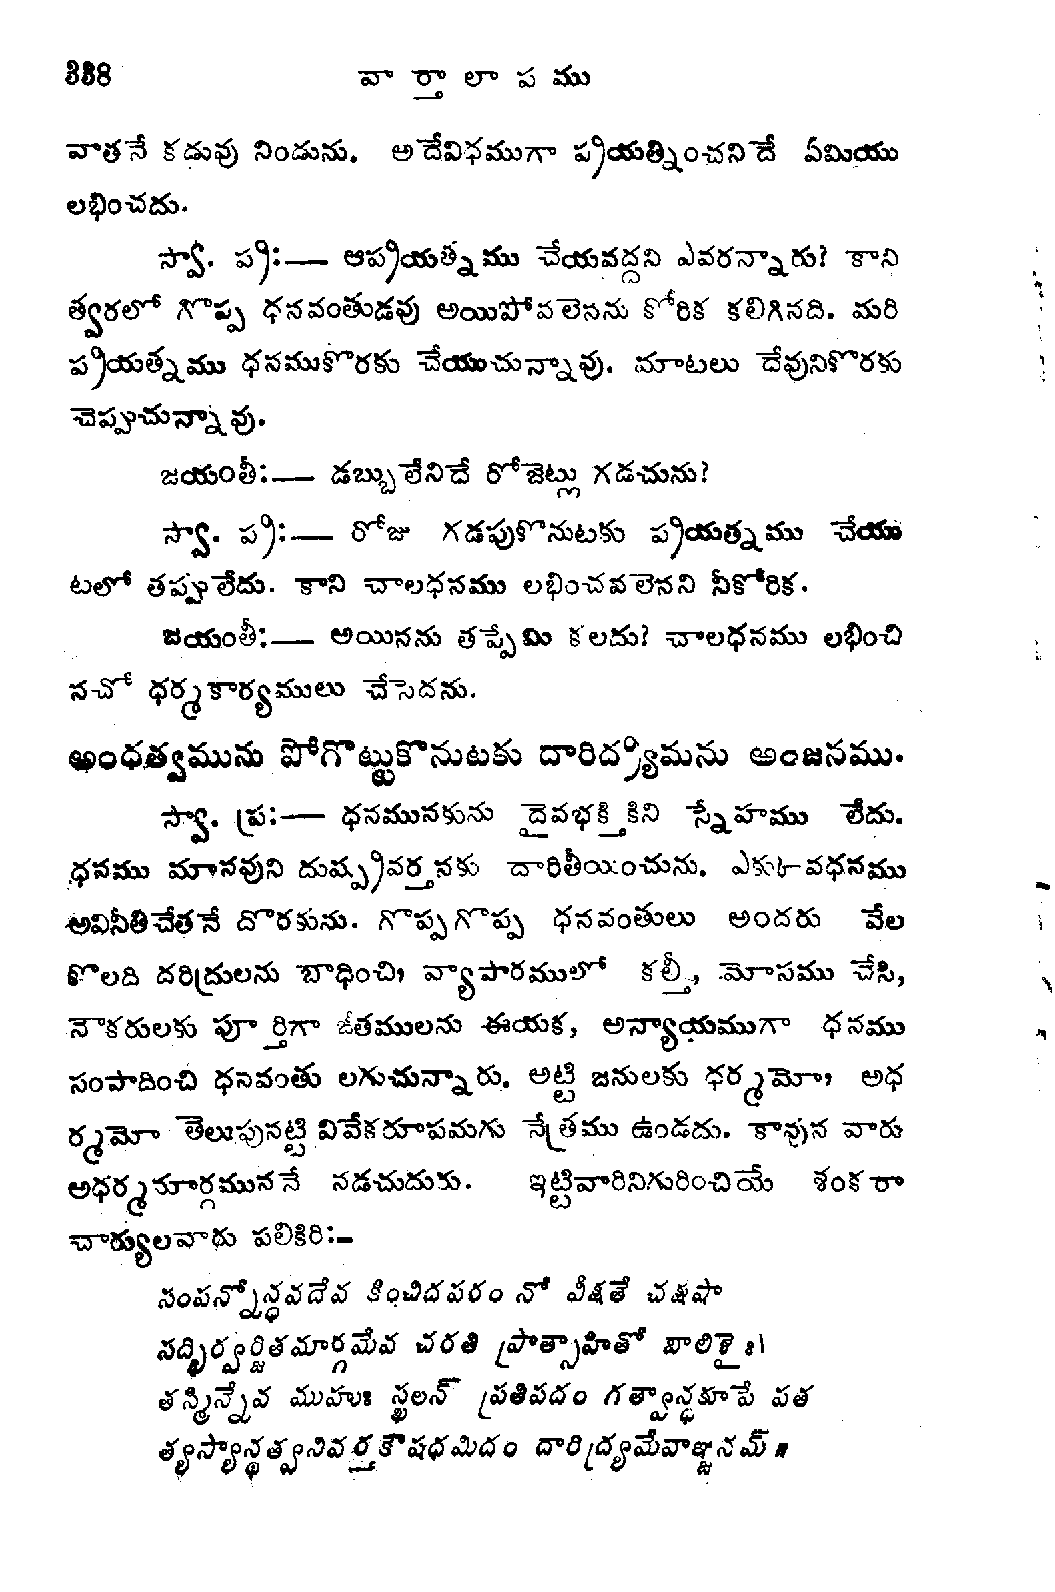 338 వార్తాలాపము
వాతనే కడువు నిండును. అదేవిధముగా ప్రియత్నించనిదే ఏమియు
లభించదు.
స్వా. ప్రి:— ఆప్రియత్నము చేయవద్దని ఎవరన్నారు? కాని
త్వరలో గొప్ప ధనవంతుడవు అయిపోవలెనను కోరిక కలిగినది. మరి
ప్రియత్నము ధనముకొరకు చేయుచున్నావు. మాటలు దేవునికొరకు
చెప్పుచున్నావు.
జయంతీ:— డబ్బులేనిదే రోజెట్లు గడచును?
స్వా. ప్రి:— రోజు గడపుకొనుటకు ప్రియత్నము చేయు
టలో తప్పులేదు. కాని చాలధనము లభించవలెనని నీకోరిక.
జయంతీ:— అయినను తప్పేమి కలదు? చాలధనము లభించి
నచో ధర్మకార్యములు చేసెదను.
అంధత్వమును పోగొట్టుకొనుటకు దారిద్ర్యిమను అంజనము.
స్వా. ప్ర:— ధనమునకును దైవభక్తికిని స్నేహము లేదు.
ధనము మానవుని దుష్ప్రివర్తనకు దారితీయించును. ఎక్కువధనము
అవినీతిచేతనే దొరకును. గొప్పగొప్ప ధనవంతులు అందరు వేల
కొలది దరిద్రులను బాధించి, వ్యాపారములో కల్తీ, మోసము చేసి,
నౌకరులకు పూర్తిగా జీతములను ఈయక, అన్యాయముగా ధనము
సంపాదించి ధనవంతు లగుచున్నారు. అట్టి జనులకు ధర్మమో, అధ
ర్మమో తెలుపునట్టి వివేకరూపమగు నేత్రము ఉండదు. కావున వారు
అధర్మమార్గముననే నడచుదురు. ఇట్టివారినిగురించియే శంకరా
చార్యులవారు పలికిరి:-
సంపన్నోన్ధవదేవ కించిదపరం నో వీక్షతే చక్షుషా
సద్భిర్వర్జితమార్గమేవ చరతి ప్రోత్సాహితో బాలిశైః।
తస్మిన్నేవ ముహుః స్ఖలన్ ప్రతిపదం గత్వాన్ధకూపే పత
త్యస్యాన్ధత్వనివర్తకౌషధమిదం దారిద్ర్యమేవాఞ్జనమ్॥